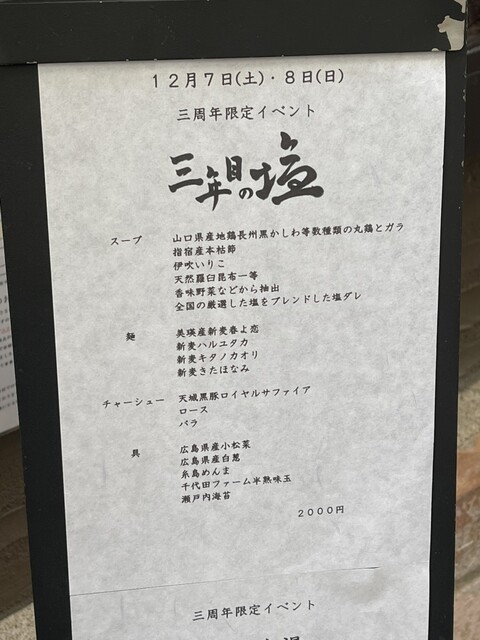 12月7日(土)・8日(日)
三周年限定イベント
三年目の塩
スープ 山口県産地鶏長州黒かしわ等数種類の丸鶏とガラ
指宿産本枯節
伊吹いりこ
天然羅臼昆布一等
香味野菜などから抽出
全国の厳選した塩をブレンドした塩ダレ
麺 美瑛産新麦春よ恋
新麦ハルユタカ
新麦キタノカオリ
新麦きたほなみ
チャーシュー 天城黒豚ロイヤルサファイア
ロース
バラ
具 広島県産小松菜
広島県産白葱
糸島めんま
千代田ファーム半熟味玉
瀬戸内海苔
2000円
三周年限定イベント